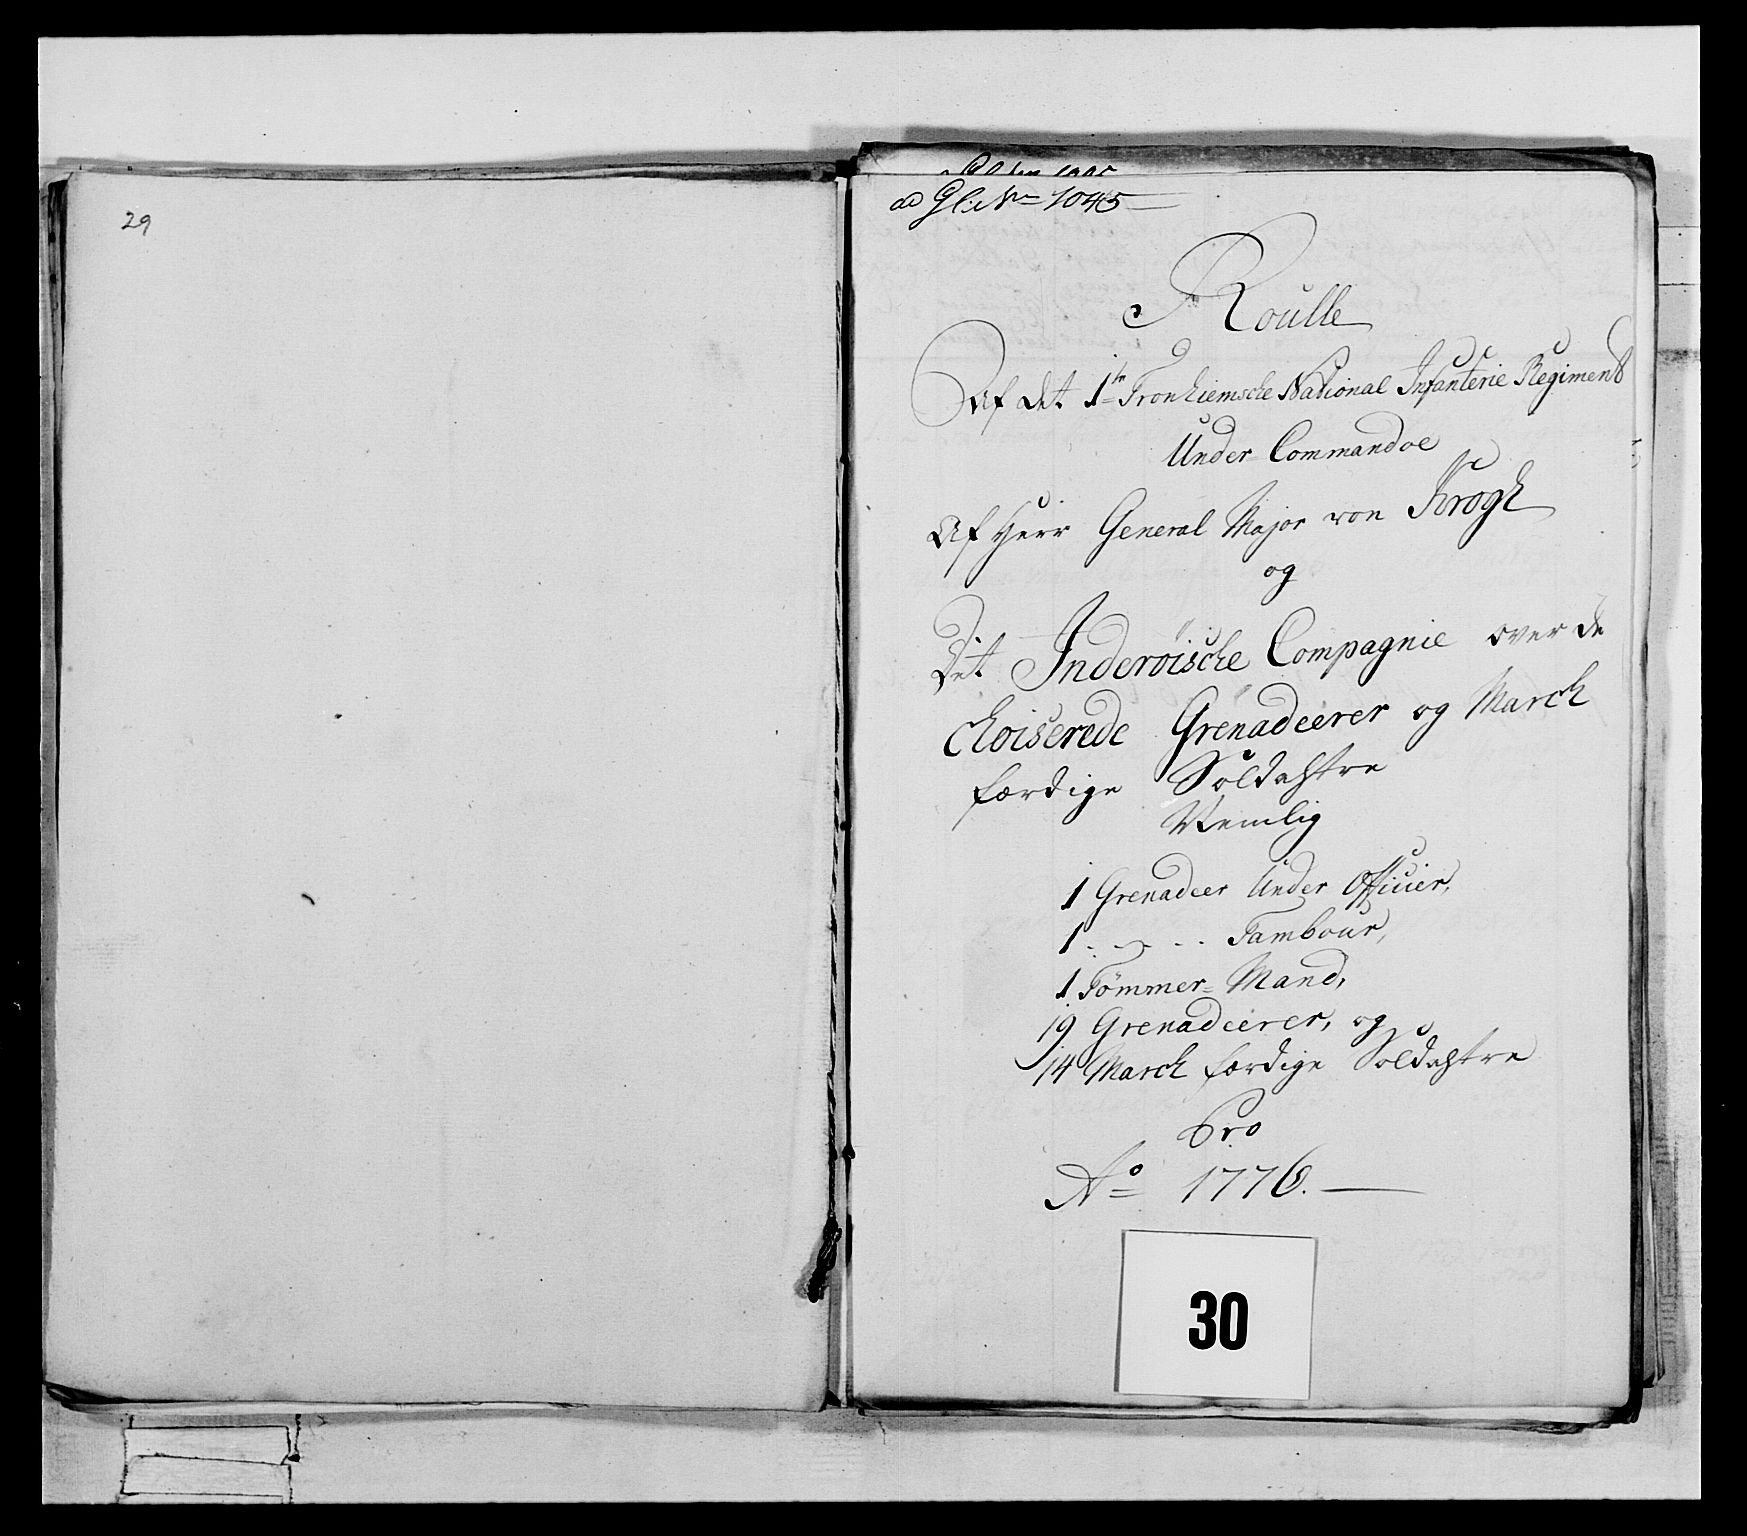 29
ad Gl: No 1045
Roulle
Af det 1te Tronhiemsche National Infanterie Regiment
Under Commandoe
Af Herr General Major von Krogh
og
Det Inderöische Compagnie over de
choiserede Grenadeerer og March
færdige Soldatere
Nemlig
1 Grenadeer Under Officier,
1 - " - - Tambour,
1 Tömmer=Mand,
19 Grenadeerer, og
14 March færdige Soldatere
Pro
Ao 1776.
30